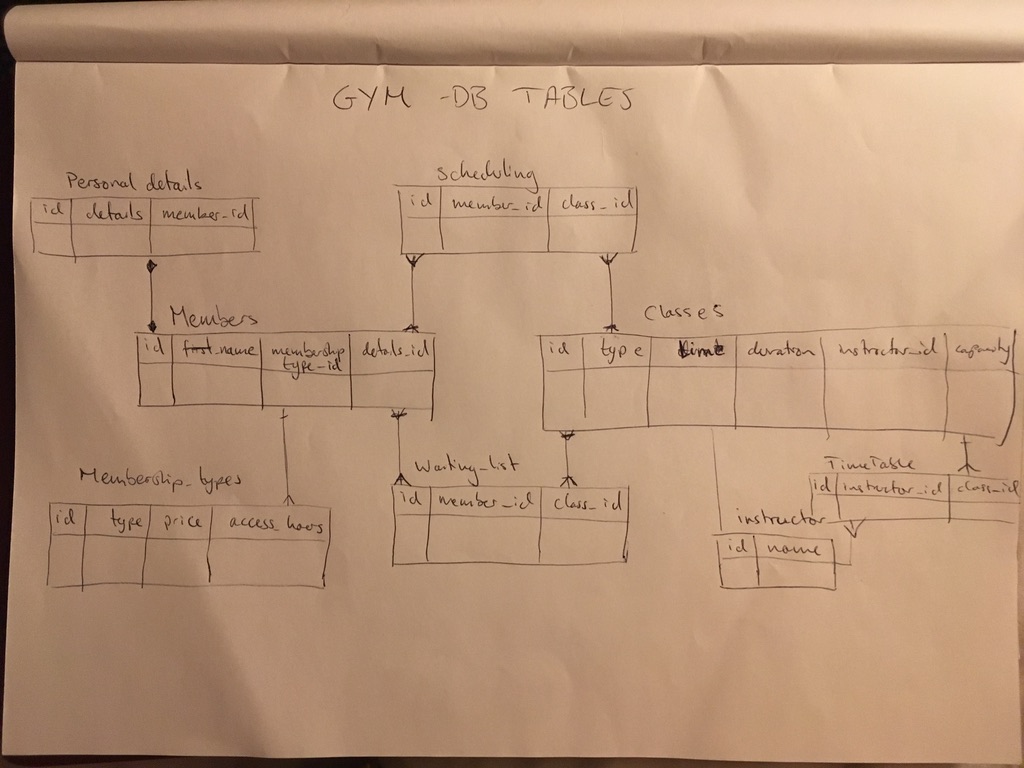 GYM - DB TABLES
Personal details
id details member_id
Scheduling
id member_id class_id
Members
id name membership type_id details_id
Classes
id type time duration instructor_id capacity
Membership_types
id type price access_hours
Waiting_list
id member_id class_id
TimeTable
id instructor_id class_id
instructor
id name